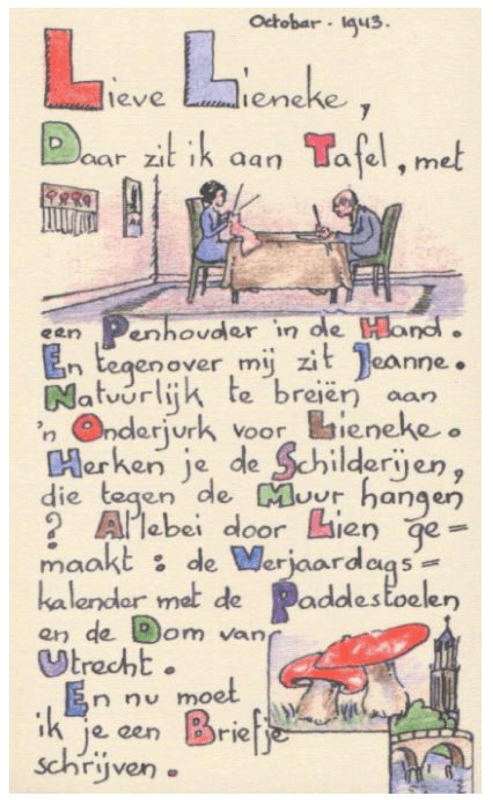 Octobar - 1943.
Lieve Lieneke,
Daar zit ik aan Tafel, met
een Penhouder in de Hand.
En tegenover mij zit Jeanne.
Natuurlijk te breiën aan
'n Onderjurk voor Lieneke.
Herken je de Schilderijen,
die tegen de Muur hangen
? Allebei door Lien ge=
maakt : de Verjaardags=
kalender met de Paddestoelen
en de Dom van
Utrecht.
En nu moet
ik je een Briefje
schrijven.